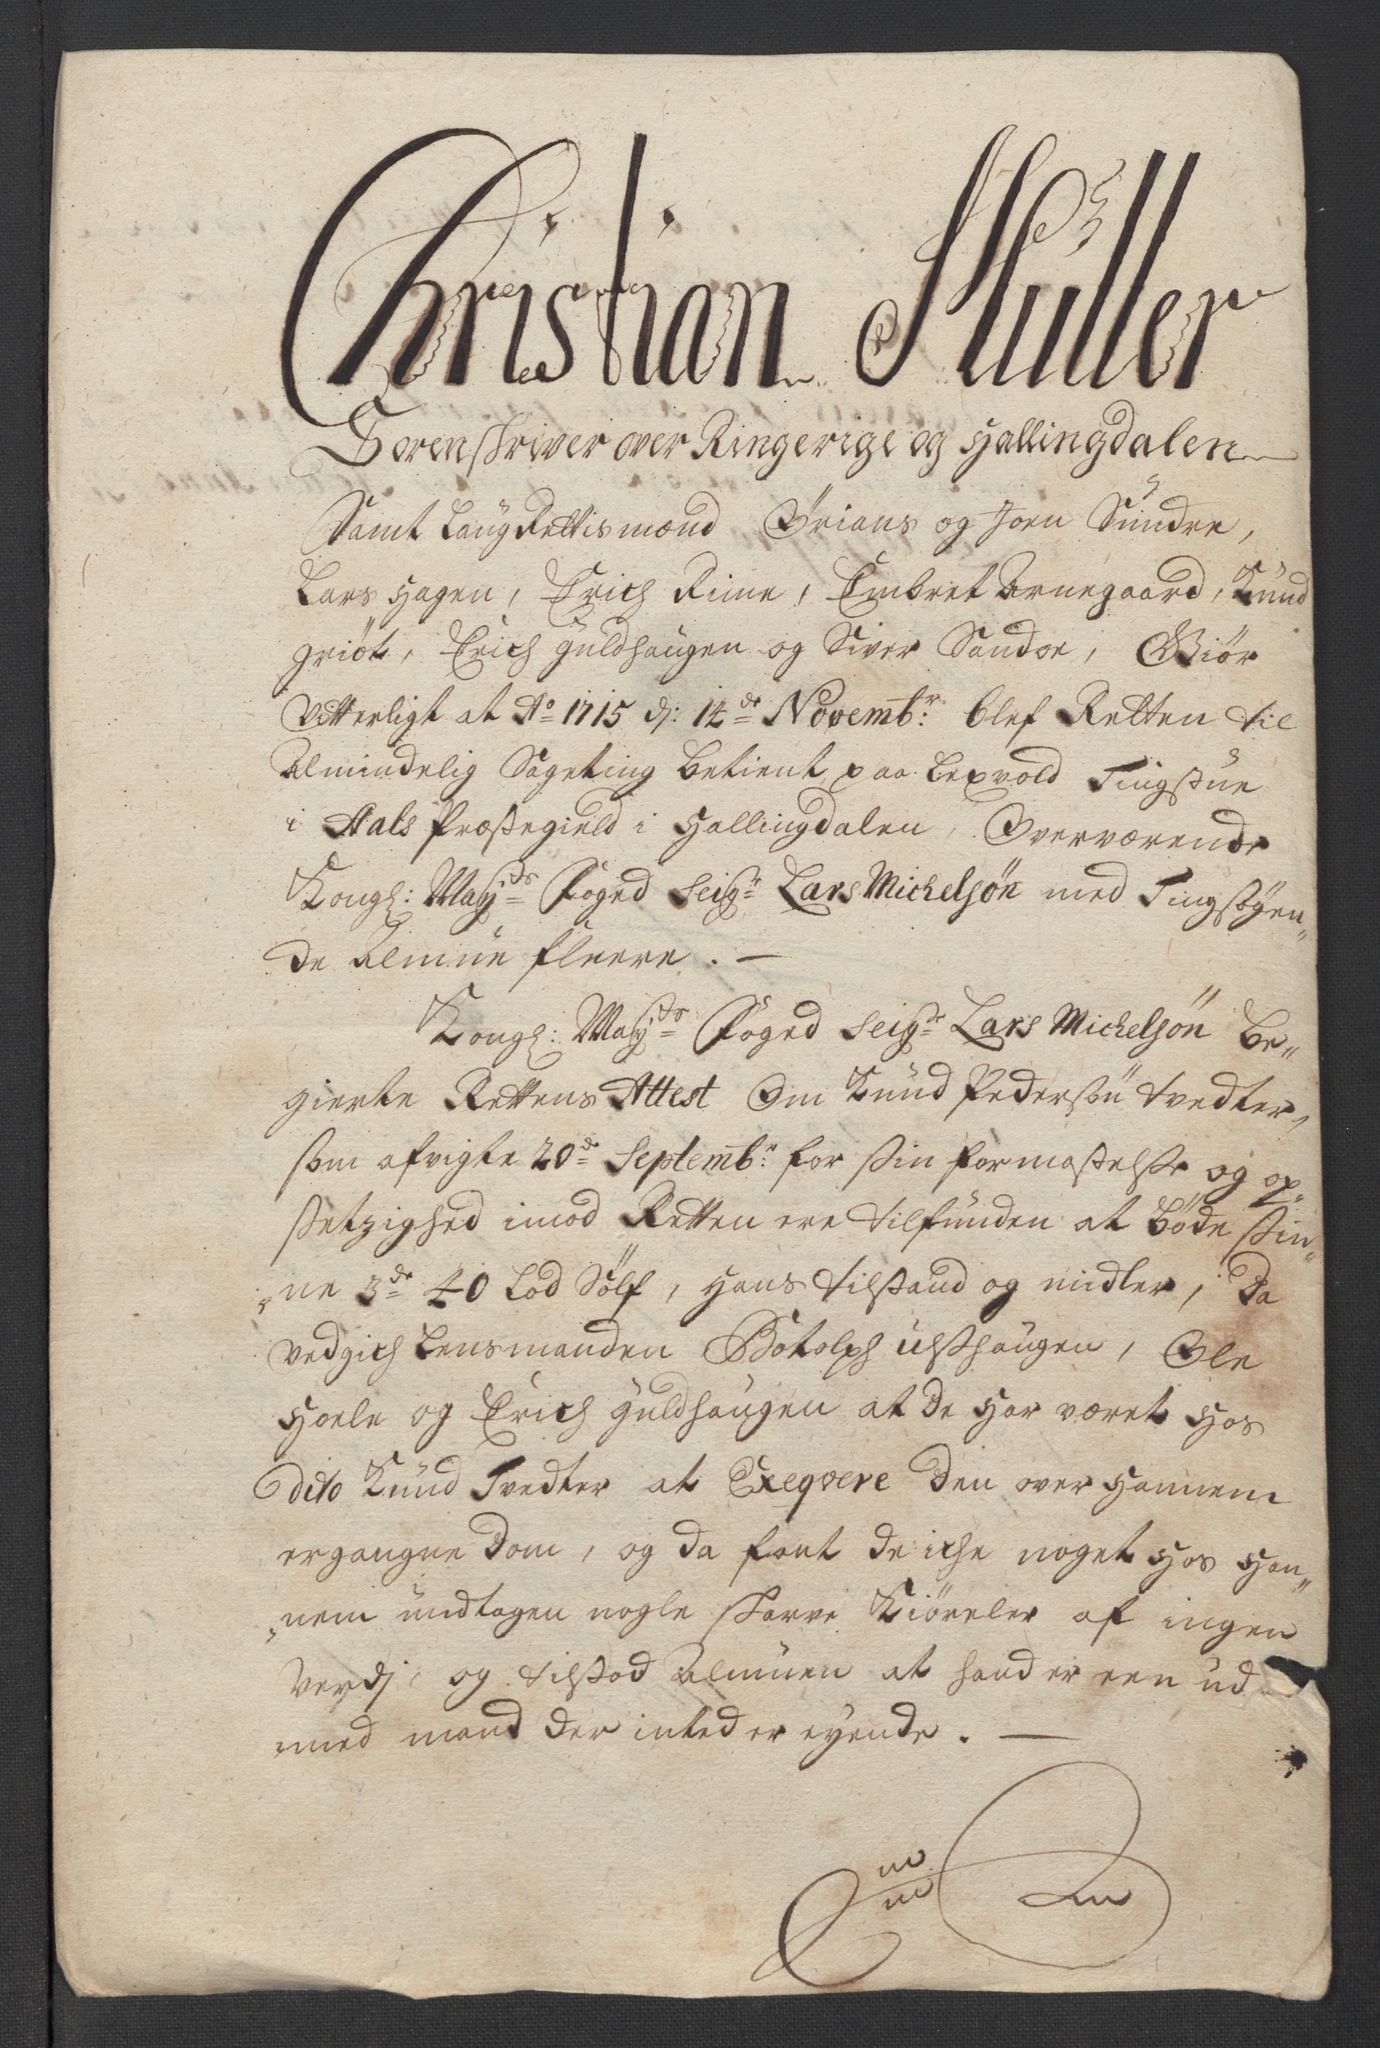 Christian Müller
Sorenskriver over Ringerige og Hallingdalen
Samt LaugRettismænd Örians og Joen Sündre,
Lars Hagen, Erich Rime, Embret Arnegaard, Knud
Griöt, Erich Guldhaugen og Siver Sandoe, Giör
Vitterligt at Ao 1715 dj: 14de Novembr: blef Retten til
Almindelig Sageting betient paa Lexvold Tingstue
i Aals Præstegield i Hallingdalen, Overværende
Kongl: Mayts Foged Seigr Lars Michelsön med Tingsøgen„
de Almue fleere. —
Kongl: Mayts Foged Seigr Lars Michelsön Be„
gierte Rettens Attest Om Knud Pederssön Tvedter,
som afvigte 20de Septembr: for sin formastelse og op„
setzighed imod Retten ere tilfunden at böde sin„
„ne 3de 40 Lod Sölf, Hans tilstand og midler, Da
vedgich Lensmanden Botolph Ulshaugen, Ole
Hoele og Erich Guldhaugen at De Har været Hos
Dito Knud Tvedter at Exeqvere Den over Hannem
ergangne Dom, og da fant de iche noget Hos Han„
„nem undtagen nogle skarve Kiöreler af ingen
Verdj, og tilstod Almuen at hand er een ud
med mand der inted er eyende. —